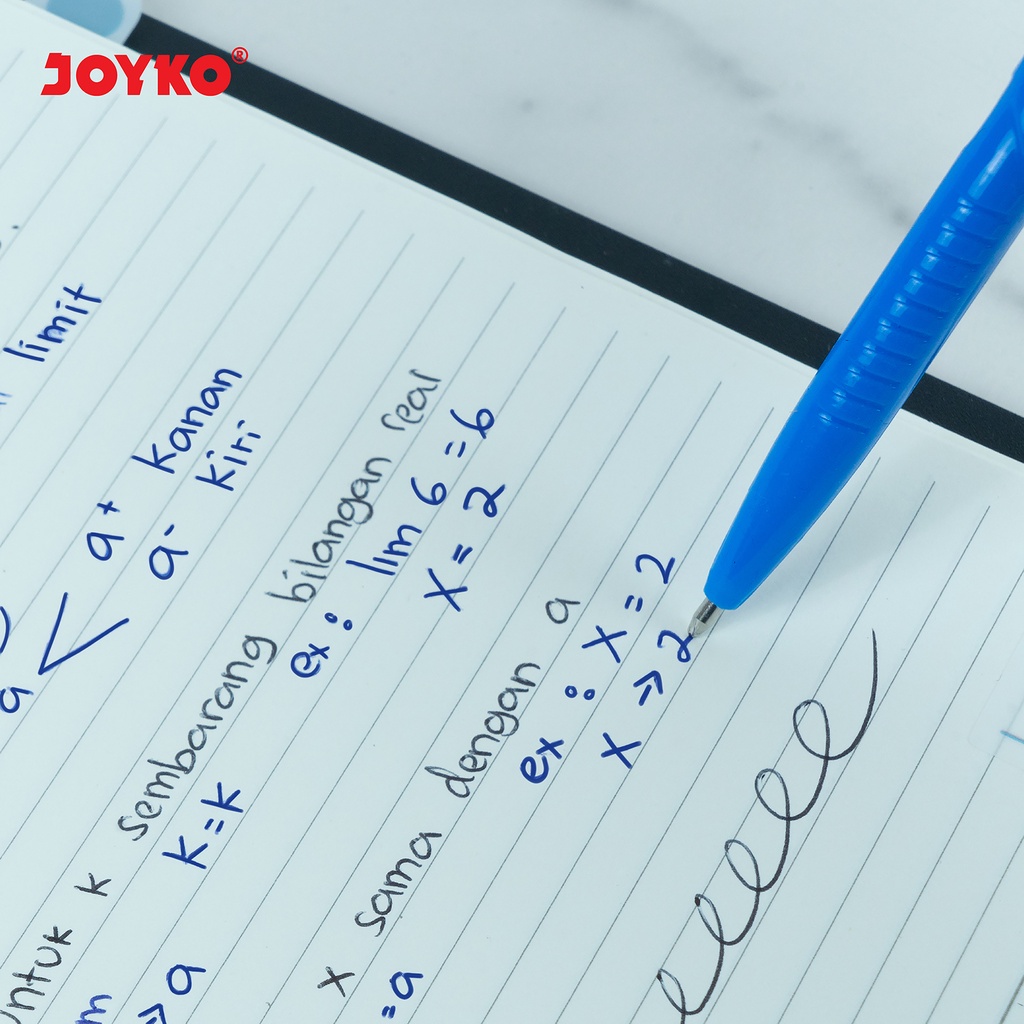 JOYKO®
limit
a+ kanan
a
a- kiri
untuk k sembarang bilangan real
k=k
ex : lim 6 = 6
x = 2
→ a
x sama dengan a
=a
ex : x = 2
x → 2